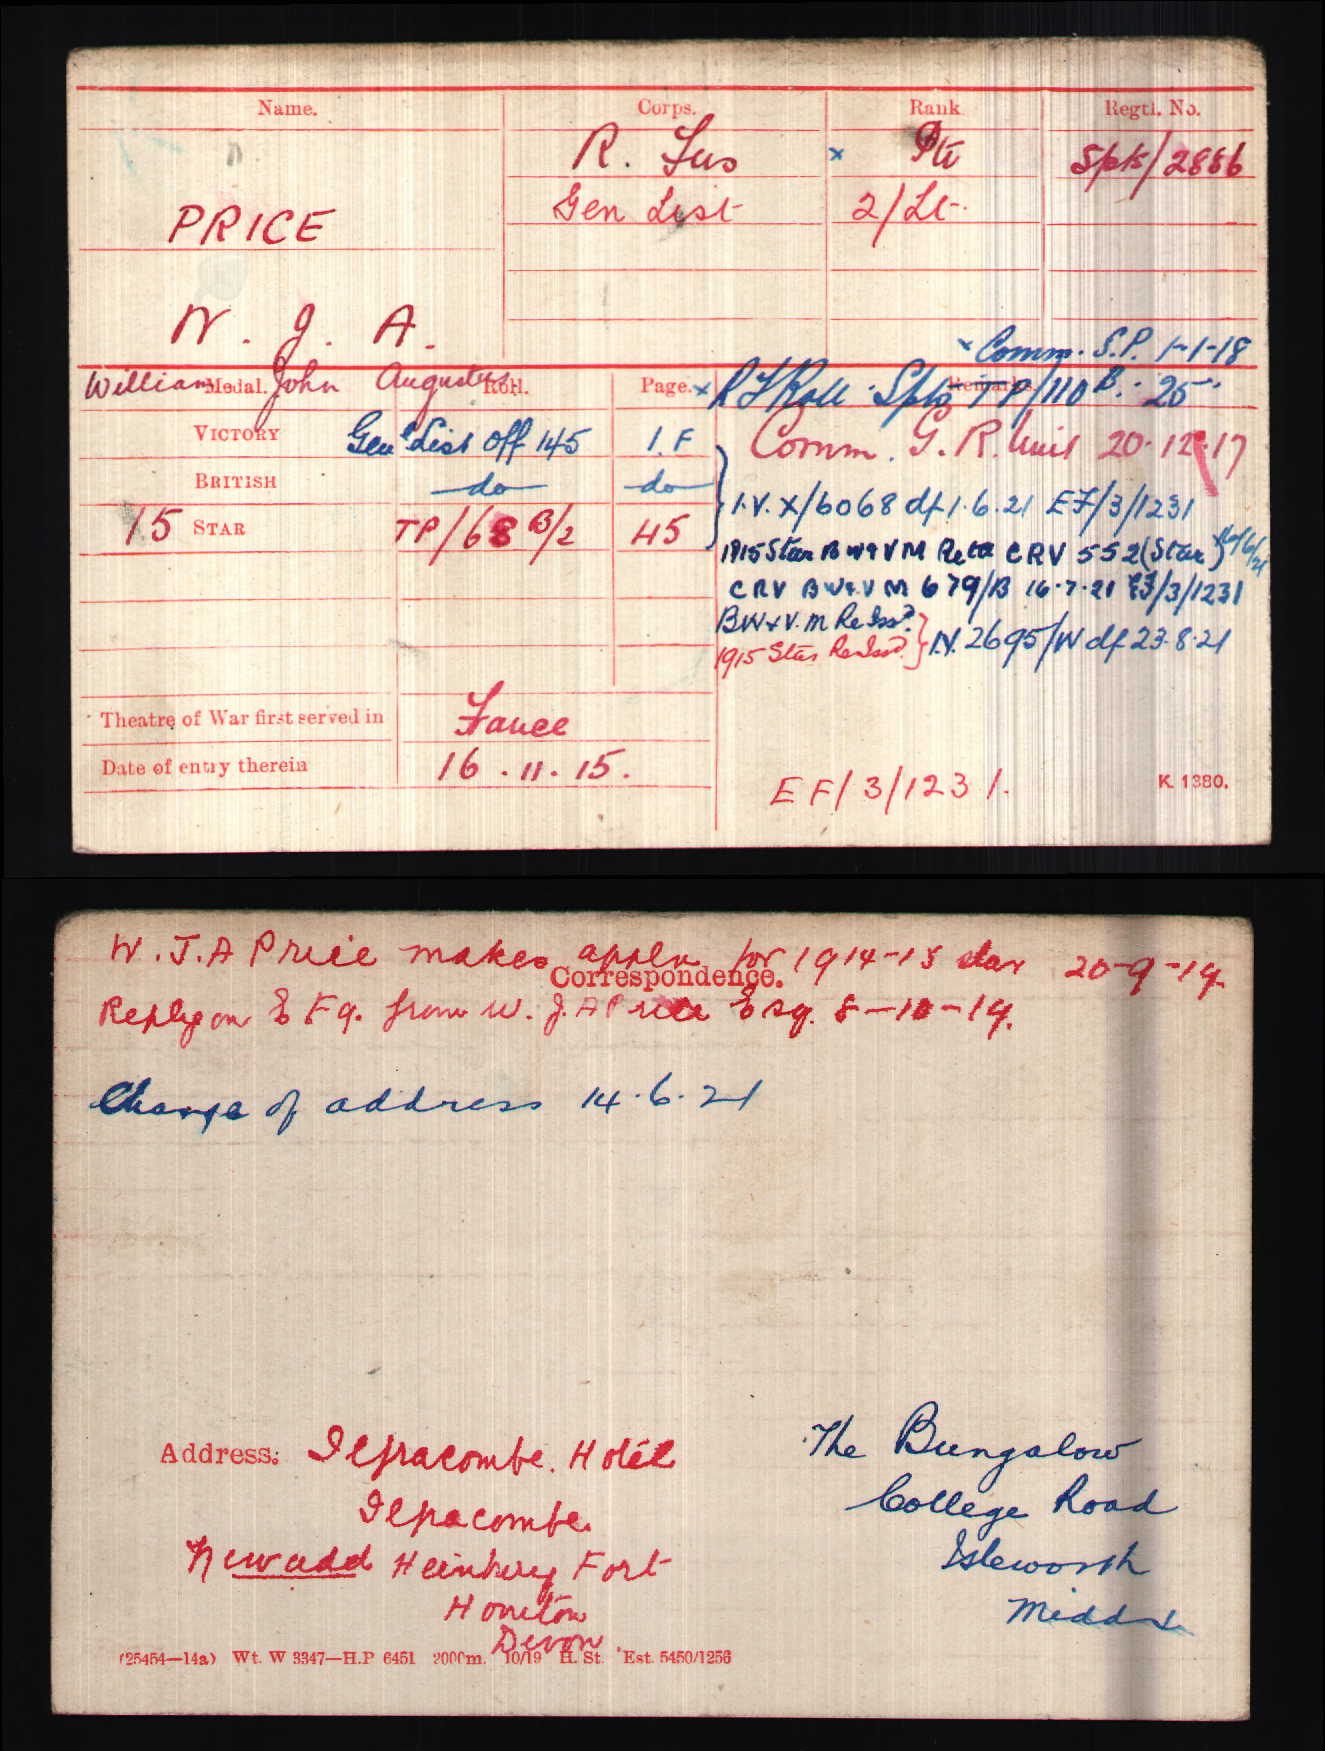 Name. Corps. Rank Regtl. No.
R. Fus × Pte Spts/2886
Gen List 2/Lt.
PRICE
W. J. A.
× Comm. S.P. 1-1-18
William John Augustus
Medal. Roll. Page. Remarks.
× R F Roll Spts TP/110 B. 25
VICTORY Genl List Off 145 1. F
Comm. G. R. Unit 20.12.17
BRITISH do do
I.V. X/6068 df 1.6.21 EF/3/1231
15 STAR TP/68 B/2 45
1915 Star B W & V M Retd CRV 552 (Star)
CRV B W & V M 679/B 16.7.21 EF/3/1231
BW & V. M Re Issd.
1915 Star Re Issd. } I.V. 2695/W df 23.8.21
Theatre of War first served in Fance
Date of entry therein 16.11.15.
EF/3/1231.
K. 1380.
W. J. A Price makes appln for 1914-15 star 20-9-19.
Correspondence.
Reply on E F 9. from W. J. A Price Esq. 8-10-19.
Change of address 14.6.21
Address: Ilfracombe. Hotel
Ilfracombe.
New add Fort
Honiton
Devon.
The Bungalow
College Road
Isleworth
Middx
(25454—14a) Wt. W 3347—H.P 6451 2000m. 10/19 H. St. Est. 5450/1256